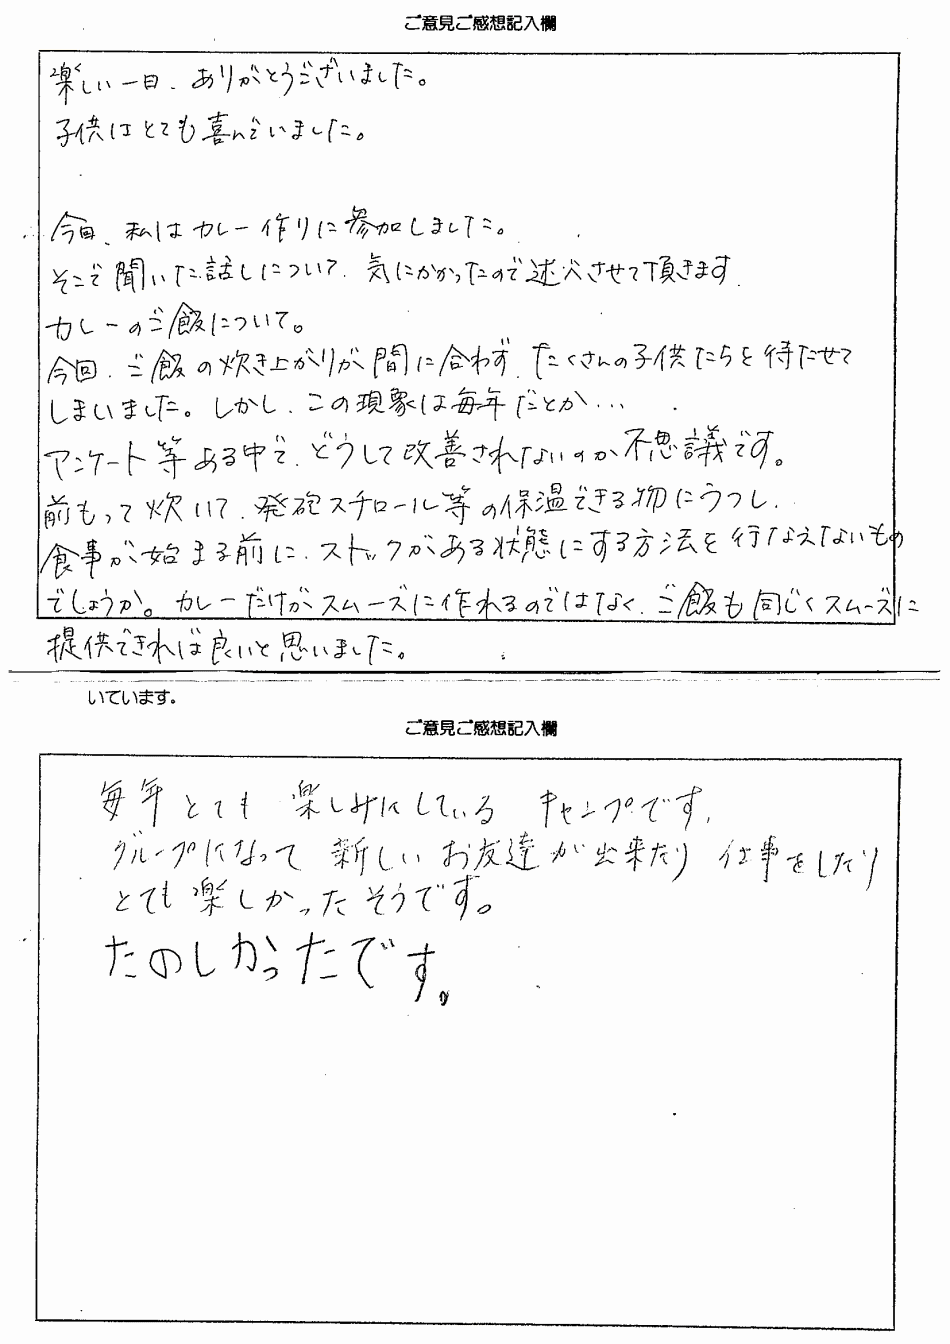 ご意見ご感想記入欄
楽しい一日、ありがとうございました。
子供はとても喜んでいました。
今日、私はカレー作りに参加しました。
そこで聞いた話しについて、気にかかったので述べさせて頂きます。
カレーのご飯について。
今回、ご飯の炊き上がりが間に合わず、たくさんの子供たちを待たせて
しまいました。しかし、この現象は毎年だとか…
アンケート等ある中で、どうして改善されないのか不思議です。
前もって炊いて、発砲スチロール等の保温できる物にうつし、
食事が始まる前に、ストックがある状態にする方法を行なえないもの
でしょうか。カレーだけがスムーズに作れるのではなく、ご飯も同じくスムーズに
提供できれば良いと思いました。
いています。
ご意見ご感想記入欄
毎年とても楽しみにしているキャンプです。
グループになって新しいお友達が出来たり仕事をしたり
とても楽しかったそうです。
たのしかったです。